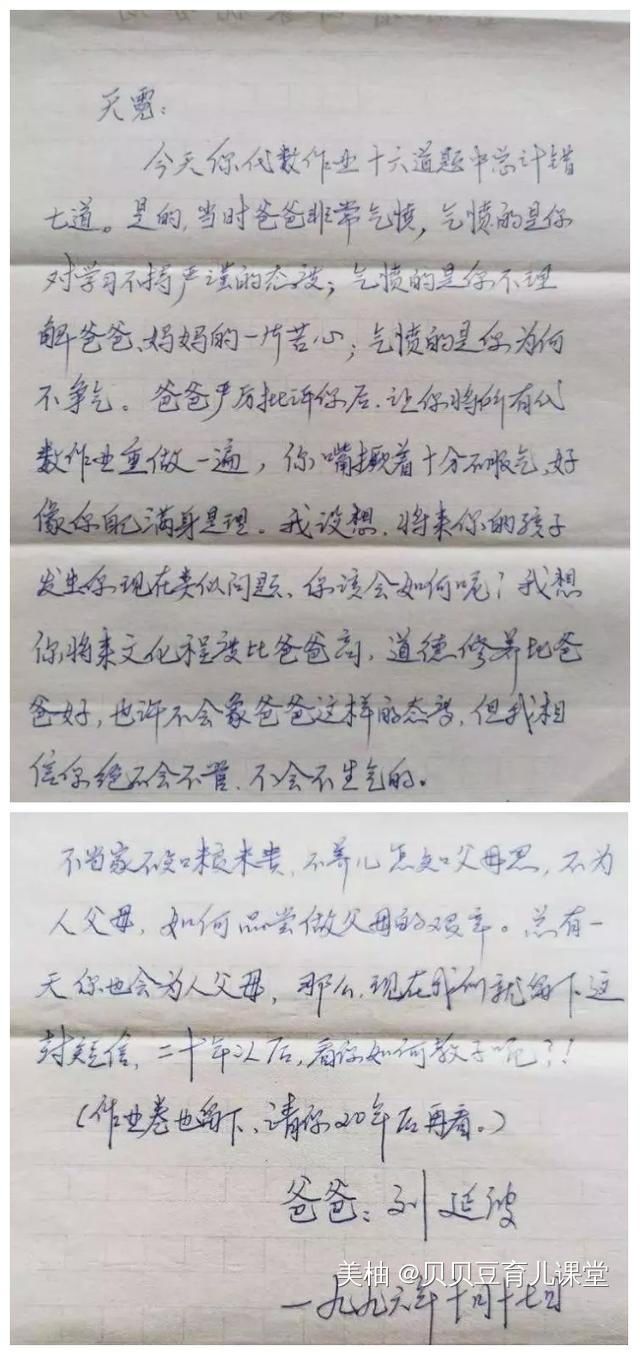 天霓:
今天你代数作业十六道题中总计错
七道。是的,当时爸爸非常气愤,气愤的是你
对学习不持严谨的态度;气愤的是你不理
解爸爸、妈妈的一片苦心;气愤的是你为何
不争气。爸爸严厉批评你后.让你将所有代
数作业重做一遍,你嘴撅着十分不服气、好
像你自己满身是理。我设想.将来你的孩子
发生你现在类似问题、你该会如何呢?我想
你将来文化程度比爸爸高,道德修养比爸
爸好,也许不会象爸爸这样的态度,但我相
信你绝不会不管.不会不生气的。
不当家不知柴米贵,不养儿怎知父母恩,不为
人父母,如何品尝做父母的艰辛。总有一
天你也会为人父母,那么,现在我们就留下这
封短信,二十年以后,看你如何教子呢?!
(作业卷也留下、请你20年后再看。)
爸爸:刘延波
美柚 @贝贝豆育儿课堂
一九九六年十月十七日